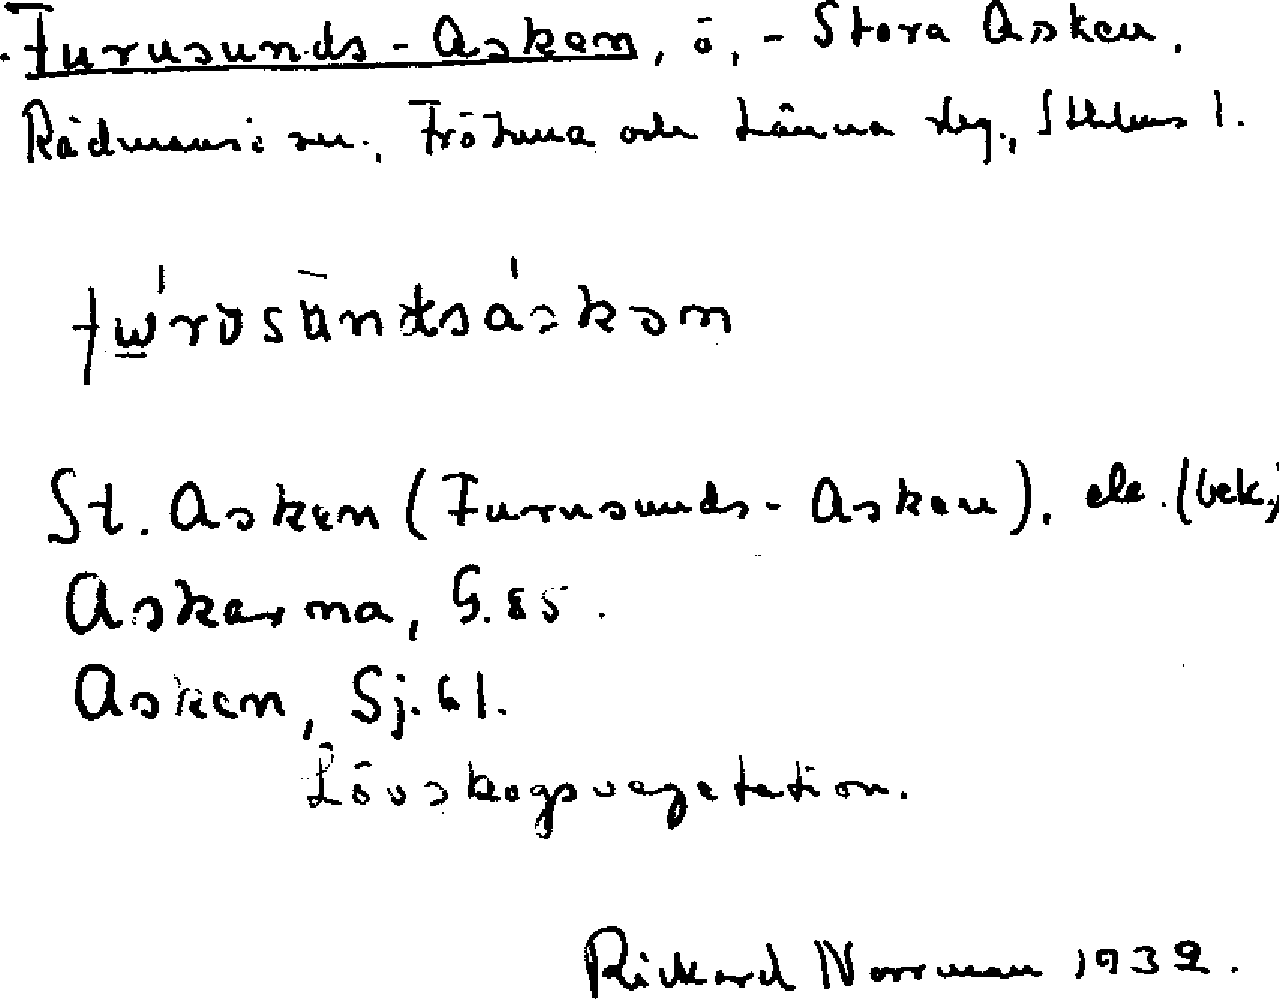 Furusunds-Asken, ö, - Stora Asken.
Rådmansö sn., Frötuna och Länna skg., Sthlms l.
St. Asken (Furusunds-Asken), ek. (bek.)
Askarna, G. 85.
Asken, Sj. 61.
Lövskogsvegetation.
Rickard Norrman 1932.